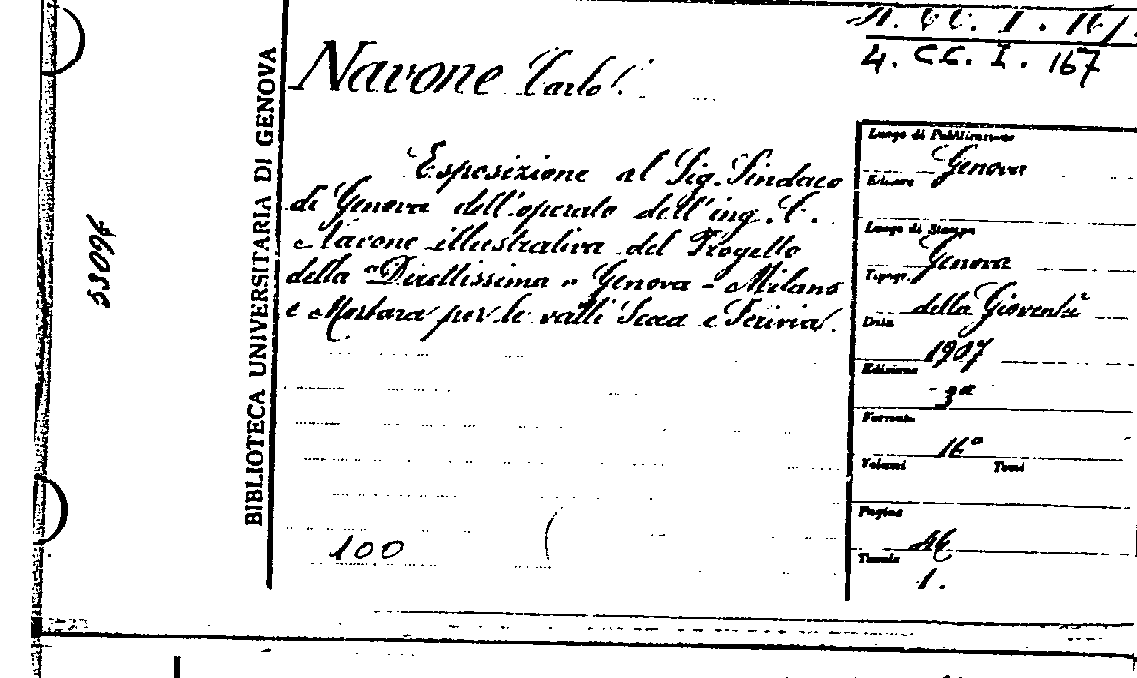 4. CC. I. 167
Navone Carlo.
Esposizione al Sig. Sindaco
di Genova dell'operato dell'ing. C.
Navone illustrativa del Progetto
della "Direttissima" Genova - Milano
e Mortara per le valli Secca e Scrivia.
100
BIBLIOTECA UNIVERSITARIA DI GENOVA
Luogo di Pubblicazione
Genova
Editore
Luogo di Stampa
Genova
Tipogr.
della Gioventù
Data
1907
Edizione
3a
Formato
16°
Volumi Tomi
Pagine
46
Tavole
1.